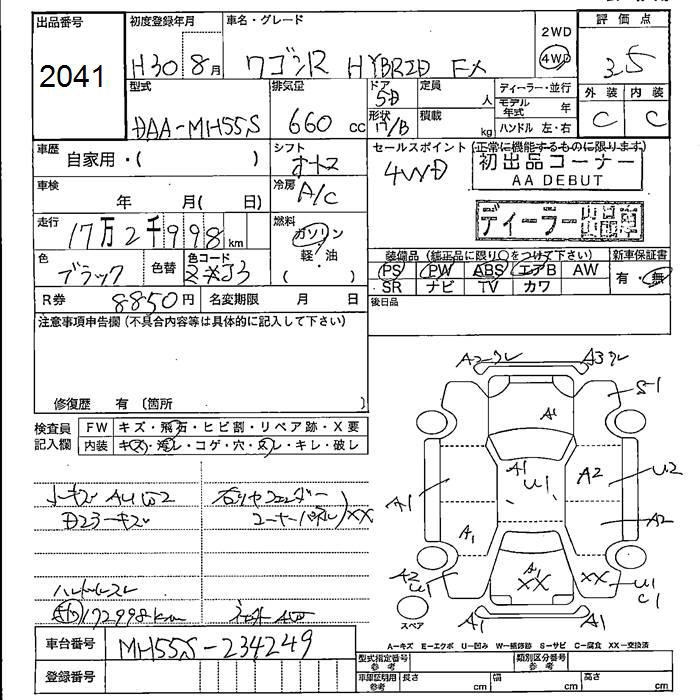 出品番号 初度登録年月 車名・グレード 2WD 評価点
2041 H30年8月 ワゴンR HYBRID FX 4WD 3.5
型式 排気量 ドア 5D 定員 人 ディーラー・並行 外装 内装
DAA-MH55S 660 cc 形状 H/B 積載 kg モデル年式 年 C C
ハンドル 左・右
車歴 自家用・( ) シフト オートマ セールスポイント (正常に機能するものに限ります)
4WD 初出品コーナー
AA DEBUT
車検 年 月( 日) 冷房 A/C
ディーラー
走行 17万2千998km 燃料 ガソリン
軽・油
( )
装備品 (純正品に限り○をつけて下さい) 新車保証書
色 ブラック 色替 色コード ZJ3 PS PW ABS エアB AW 有・無
SR ナビ TV カワ
R券 8850円 名変期限 月 日 後日品
注意事項申告欄 (不具合内容等は具体的に記入して下さい)
修復歴 有 (箇所 )
検査員記入欄 FW キズ・飛石・ヒビ割・リペア跡・X要
内装 キズ・汚レ・コゲ・穴・スレ・キレ・破レ
A3 S-1
A1
A1 U1 A2 U2
A1 A1 A2
A2 U1 A1 XX XX U1 C1
A1 A1
スペア
小キズ
XX
172998km
車台番号 MH55S-234249
A=キズ E=エクボ U=凹み W=補修跡 S=サビ C=腐食 XX=交換済
登録番号 型式指定番号 参考 類別区分番号 参考
車庫証明用 参考 長さ cm 幅 cm 高さ cm